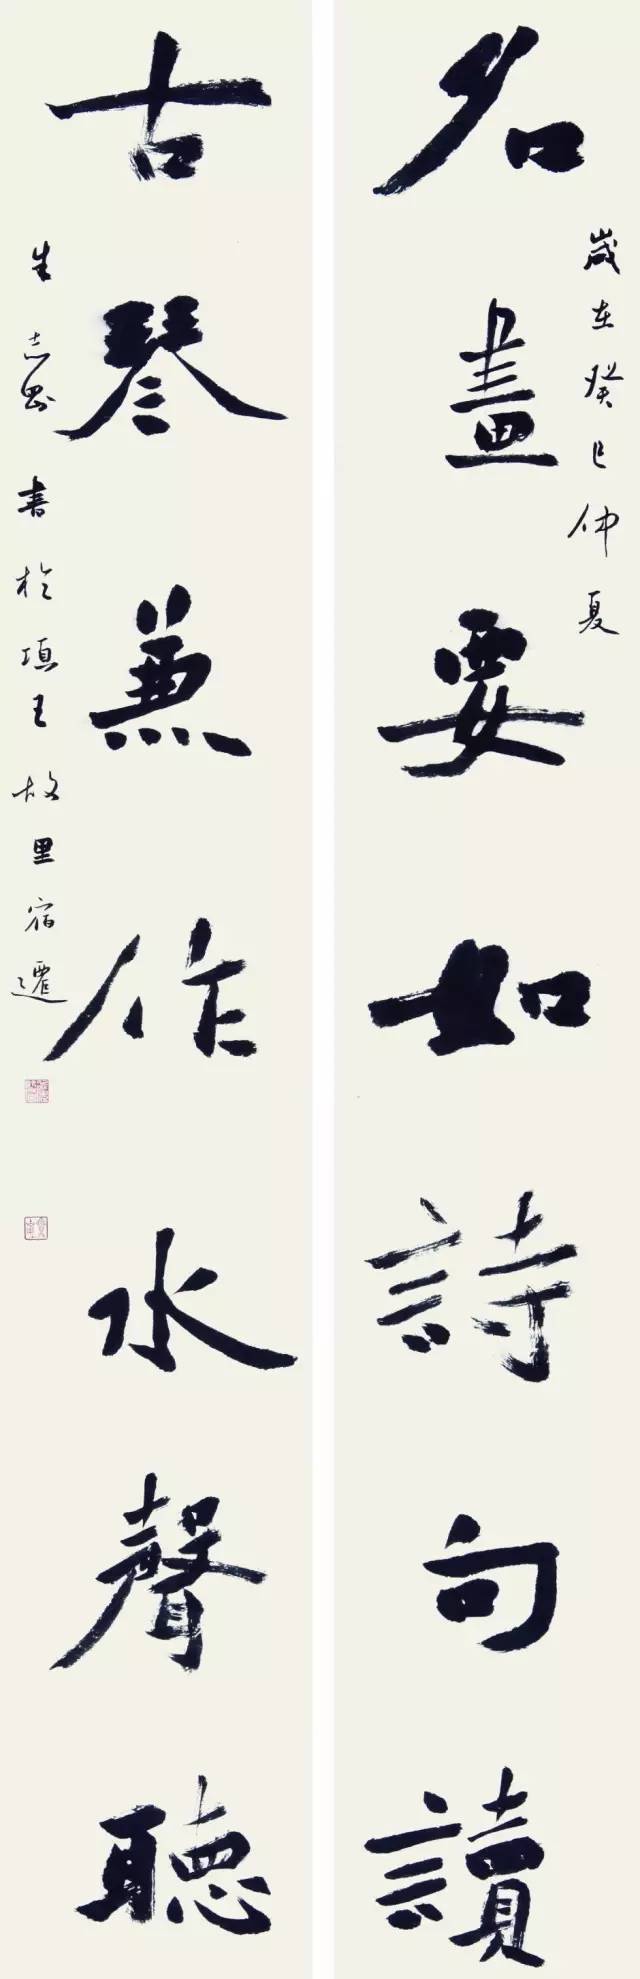 歲在癸巳仲夏
名畫要如詩句讀
古琴兼作水聲聽
志 書於項王故里宿遷